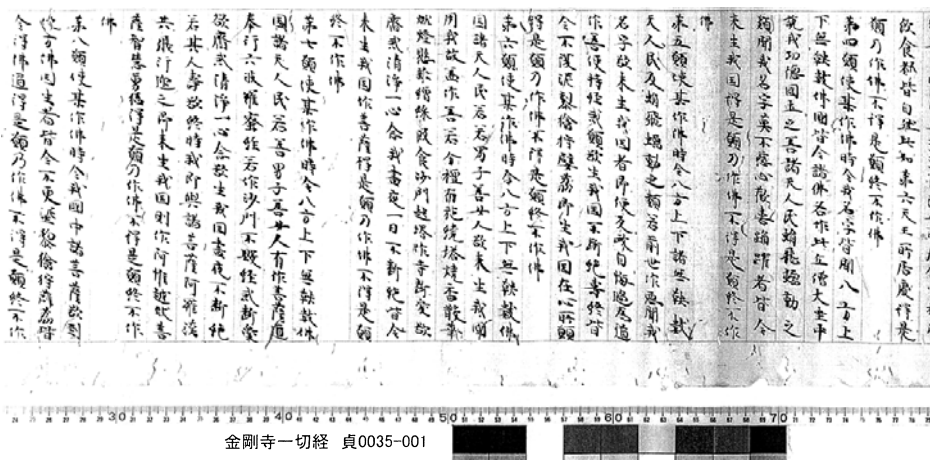 飲食都皆自然其如第六天王所居處得是
願乃作佛不得是願終不作佛
第四願使某作佛時令我名字皆聞八方上
下無鞅數佛國皆令諸佛各於比丘僧大坐中
說我功德國土之善諸天人民蜎飛蠕動之
類聞我名字莫不慈心歡喜踊躍者皆令
來生我國得是願乃作佛不得是願終不作
佛
第五願使某作佛時令八方上下諸無鞅數
天人民及蜎飛蠕動之類若前世作惡聞我
名字欲來生我國者即便反政自悔過為道
作善便持經戒願欲生我國不斷絕壽終皆
令不復泥犁禽獸薜荔即生我國在心所願
得是願乃作佛不得是願終不作佛
第六願使某作佛時令八方上下無鞅數佛
國諸天人民若善男子善女人欲來生我國
用我故益作善若分檀布施繞塔燒香散華
燃燈懸雜繒綵飯食沙門起塔作寺斷愛欲
齋戒清淨一心念我晝夜一日不斷絕皆令
來生我國作菩薩得是願乃作佛不得是願
終不作佛
第七願使某作佛時令八方上下無鞅數佛
國諸天人民若善男子善女人有作菩薩道
奉行六波羅蜜經若作沙門不毀經戒斷愛
欲齋戒清淨一心念欲生我國晝夜不斷絕
若其人壽欲終時我即與諸菩薩阿羅漢
共飛行迎之即來生我國則作阿惟越致菩
薩智慧勇猛得是願乃作佛不得是願終不作
佛
第八願使某作佛時令我國中諸菩薩欲到
他方佛國生者皆令不更泥黎禽獸薜荔皆
令得佛道得是願乃作佛不得是願終不作
30 40 50 60 70
金剛寺一切経　貞0035-001